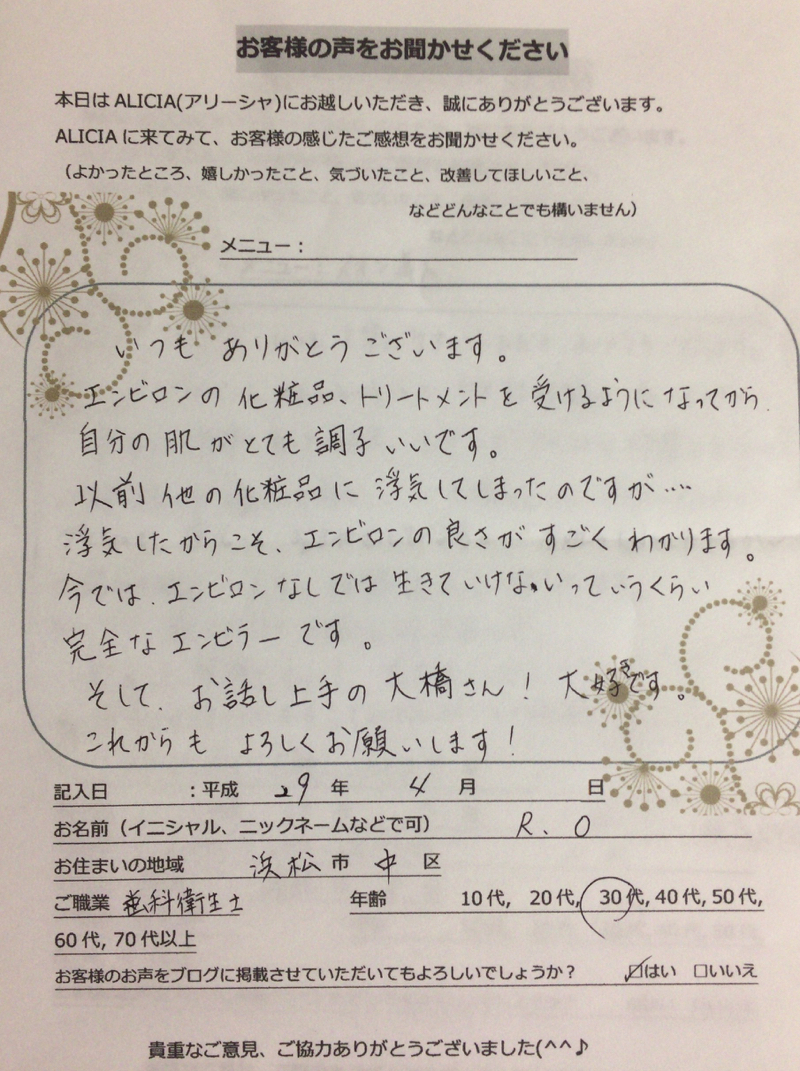 お客様の声をお聞かせください
本日は ALICIA(アリーシャ)にお越しいただき、誠にありがとうございます。
ALICIA に来てみて、お客様の感じたご感想をお聞かせください。
（よかったところ、嬉しかったこと、気づいたこと、改善してほしいこと、
などどんなことでも構いません）
メニュー：
いつも ありがとうございます。
エンビロンの 化粧品、トリートメントを 受けるようになってから
自分の 肌がとても 調子いいです。
以前 他の化粧品に 浮気してしまったのですが…
浮気したからこそ、エンビロンの良さが すごく わかります。
今では、エンビロンなしでは 生きていけないっていうくらい
完全な エンビラーです。
そして、お話し上手の 大橋さん！ 大好きです。
これからも よろしくお願いします！
記入日 ：平成 29 年 4 月 日
お名前（イニシャル、ニックネームなどで可） R. O
お住まいの地域 浜松 市 中 区
ご職業 歯科衛生士 年齢 10 代, 20 代, 30 代, 40 代, 50 代,
60 代, 70 代以上
お客様のお声をブログに掲載させていただいてもよろしいでしょうか？ ☑はい □いいえ
貴重なご意見、ご協力ありがとうございました(^^♪